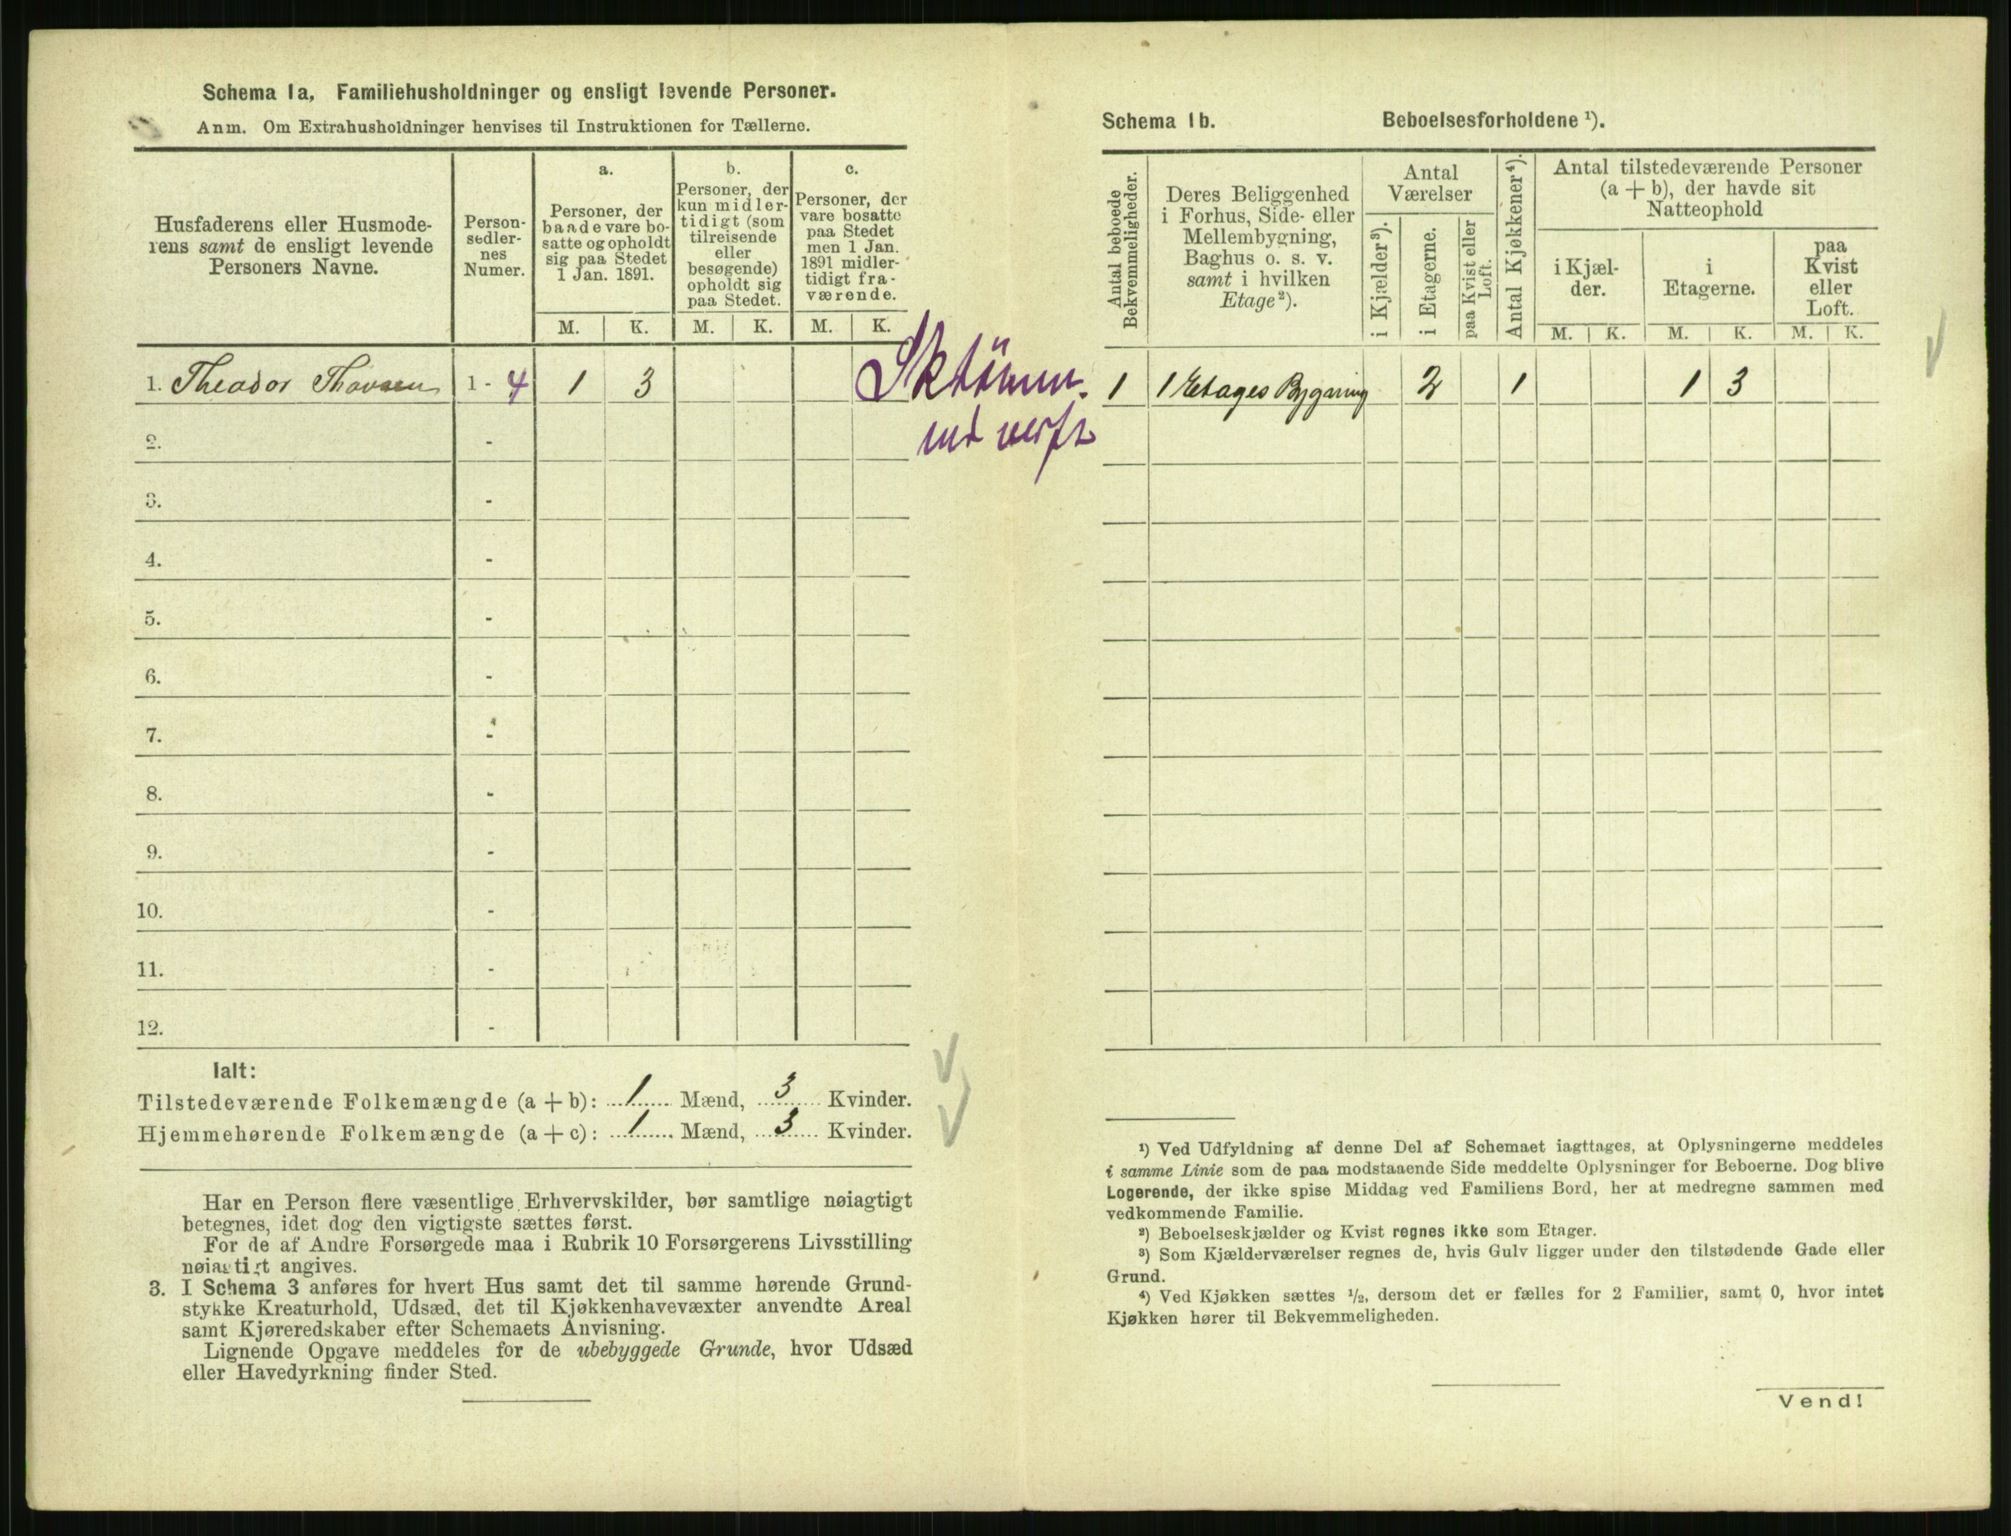 Schema Ia, Familiehusholdninger og ensligt levende Personer.
Anm. Om Extrahusholdninger henvises til Instruktionen for Tællerne.
Husfaderens eller Husmode-
rens samt de ensligt levende
Personers Navne.
Person-
sedler-
nes
Numer.
a.
Personer, der
baade vare bo-
satte og opholdt
sig paa Stedet
1 Jan. 1891.
b.
Personer, der
kun midler-
tidigt (som
tilreisende
eller
besøgende)
opholdt sig
paa Stedet.
c.
Personer, der
vare bosatte
paa Stedet
men 1 Jan.
1891 midler-
tidigt fra-
værende.
M. K. M. K. M. K.
1. Theodor 1 - 4 1 3
2. -
3. -
4. -
5. -
6. -
7. -
8. -
9. -
10. -
11. -
12. -
Ialt:
Tilstedeværende Folkemængde (a + b): 1 Mænd, 3 Kvinder.
Hjemmehørende Folkemængde (a + c): 1 Mænd, 3 Kvinder.
Har en Person flere væsentlige Erhvervskilder, bør samtlige nøiagtigt
betegnes, idet dog den vigtigste sættes først.
For de af Andre Forsørgede maa i Rubrik 10 Forsørgerens Livsstilling
nøiagtigt angives.
3. I Schema 3 anføres for hvert Hus samt det til samme hørende Grund-
stykke Kreaturhold, Udsæd, det til Kjøkkenhavevæxter anvendte Areal
samt Kjøreredskaber efter Schemaets Anvisning.
Lignende Opgave meddeles for de ubebyggede Grunde, hvor Udsæd
eller Havedyrkning finder Sted.
Schema Ib. Beboelsesforholdene ¹).
Antal beboede
Bekvemmeligheder.
Deres Beliggenhed
i Forhus, Side- eller
Mellembygning,
Baghus o. s. v.
samt i hvilken
Etage²).
Antal
Værelser
i Kjælder³).
i Etagerne.
paa Kvist eller
Loft.
Antal Kjøkkener⁴).
Antal tilstedeværende Personer
(a + b), der havde sit
Natteophold
i Kjæl-
der.
i
Etagerne.
paa
Kvist
eller
Loft.
M. K. M. K. M. K.
1 1 Etages Bygning 2 1 1 3
¹) Ved Udfyldning af denne Del af Schemaet iagttages, at Oplysningerne meddeles
i samme Linie som de paa modstaaende Side meddelte Oplysninger for Beboerne. Dog blive
Logerende, der ikke spise Middag ved Familiens Bord, her at medregne sammen med
vedkommende Familie.
²) Beboelseskjælder og Kvist regnes ikke som Etager.
³) Som Kjælderværelser regnes de, hvis Gulv ligger under den tilstødende Gade eller
Grund.
⁴) Ved Kjøkken sættes ½, dersom det er fælles for 2 Familier, samt 0, hvor intet
Kjøkken hører til Bekvemmeligheden.
Vend!